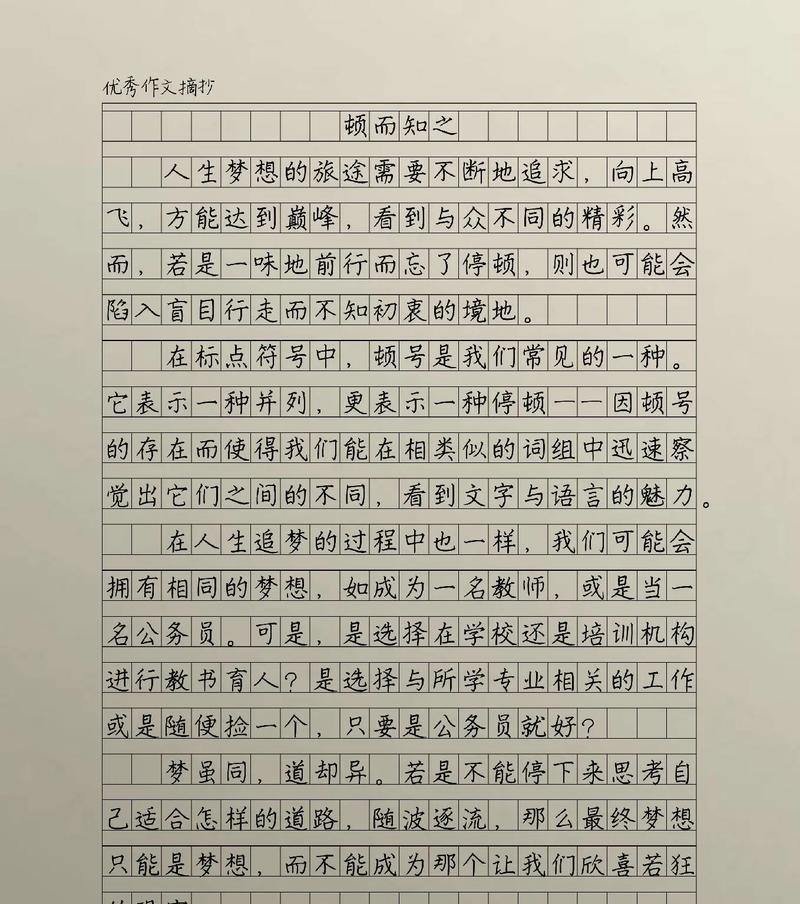 优秀作文摘抄
顿而知之
人生梦想的旅途需要不断地追求，向上高
飞，方能达到巅峰，看到与众不同的精彩。然
而，若是一味地前行而忘了停顿，则也可能会
陷入盲目行走而不知初衷的境地。
在标点符号中，顿号是我们常见的一种。
它表示一种并列，更表示一种停顿——因顿号
的存在而使得我们能在相类似的词组中迅速察
觉出它们之间的不同，看到文字与语言的魅力。
在人生追梦的过程中也一样，我们可能会
拥有相同的梦想，如成为一名教师，或是当一
名公务员。可是，是选择在学校还是培训机构
进行教书育人？是选择与所学专业相关的工作
或是随便捡一个，只要是公务员就好？
梦虽同，道却异。若是不能停下来思考自
己适合怎样的道路，随波逐流，那么最终梦想
只能是梦想，而不能成为那个让我们欣喜若狂